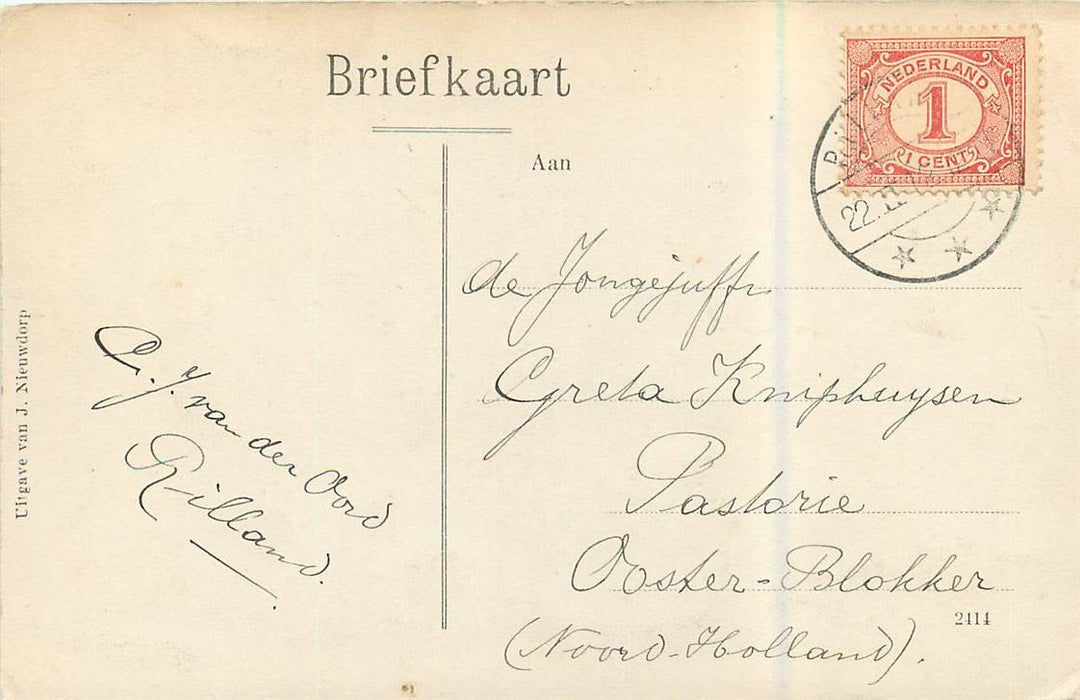 Briefkaart
NEDERLAND
1
1 CENT
22.
Aan
de Jongejuffr
Greta Kniphuysen
Pastorie
Ooster-Blokker
(Noord-Holland).
2414
G. J. van den Oord
Rilland.
Uitgave van J. Nieuwdorp